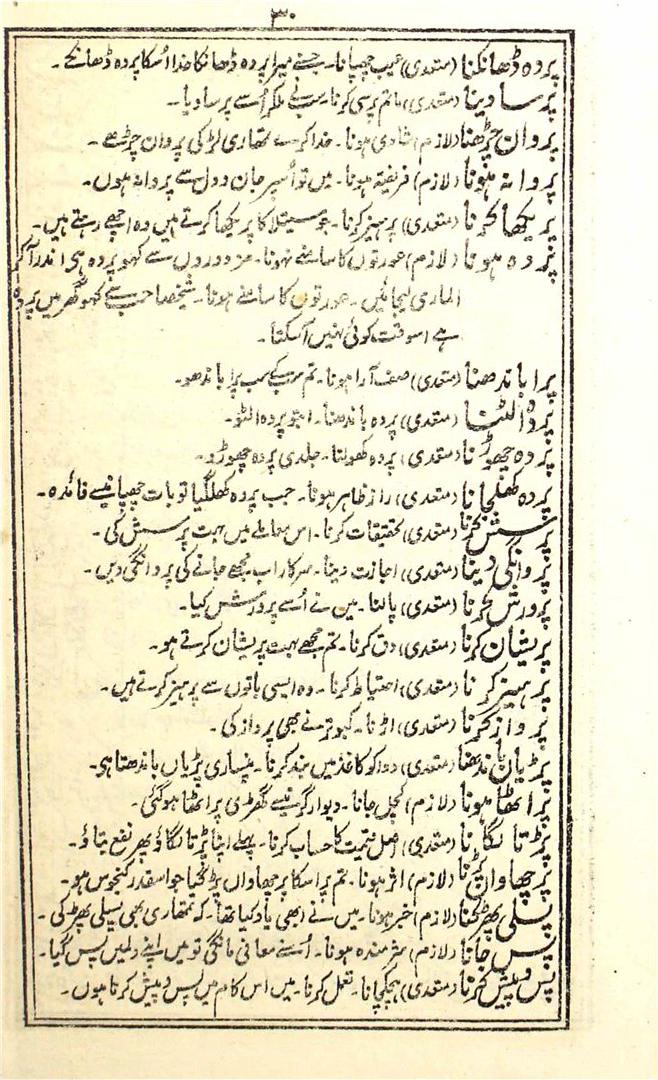 ۳۰
پردہ ڈھانکنا (متعدی) عیب چھپانا۔ جسنے میرا پردہ ڈھانکا خدا اُسکا پردہ ڈھانکے۔
پرسا دینا (متعدی) ماتم پرسی کرنا۔ سب نے ملکر اُسے پرسا دیا۔
پروان چڑھنا (لازم) شادی ہونا۔ خدا کرے تمھاری لڑکی پروان چڑھے۔
پروانہ ہونا (لازم) فریفتہ ہونا۔ میں تو اُسپر جان و دل سے پروانہ ہوں۔
پریکھا کرنا (متعدی) پرہیز کرنا۔ جو سیتلا کا پریکھا کرتے ہیں وہ اچھے رہتے ہیں۔
پردہ ہونا (لازم) عورتوں کا سامنے نہونا۔ مزدوروں سے کہو پردہ ہی اندر آکر
الماری لیجائیں۔ عورتوں کا سامنے ہونا۔ شیخصاحب سے کہو گھر میں پردہ
ہے اسوقت کوئی نہیں آسکتا۔
پرا باندھنا (متعدی) صف آرا ہونا۔ تم سب کے سب پرا باندھو۔
پردہ الٹنا (متعدی) پردہ باندھنا۔ ابتو پردہ الٹو۔
پردہ چھوڑنا (متعدی) پردہ کھولنا۔ جلدی پردہ چھوڑو۔
پردہ کھلجانا (متعدی) راز ظاہر ہونا۔ جب پردہ کھلگیا تو بات چھپانیسے فائدہ۔
پرسش کرنا (متعدی) تحقیقات کرنا۔ اس معاملے میں بہت پرسش کی۔
پروانگی دینا (متعدی) اجازت دینا۔ سرکار اب مجھے جانے کی پروانگی دیں۔
پرورش کرنا (متعدی) پالنا۔ مین نے اُسے پرورش کیا۔
پریشان کرنا (متعدی) دق کرنا۔ تم مجھے بہت پریشان کرتے ہو۔
پرہیز کرنا (متعدی) احتیاط کرنا۔ وہ ایسی باتوں سے پرہیز کرتے ہیں۔
پرواز کرنا (متعدی) اڑنا۔ کبوتر نے بھی پرواز کی۔
پڑیاں باندھنا (متعدی) دوا کو کاغذ میں بند کرنا۔ پنساری پڑیاں باندھتا ہی۔
پراٹھا ہونا (لازم) کچل جانا۔ دیوار گرنیسے گھڑی پراٹھا ہوگئی۔
پڑتا لگانا (متعدی) اصل قیمت کا حساب کرنا۔ پہلے اپنا پڑتا لگاؤ پھر نفع بتاؤ۔
پرچھاواں پڑنا (لازم) اثر ہونا۔ تم پر اسکا پرچھاواں پڑگیا جو اسقدر کنجوس ہو۔
پسلی پھڑکنا (لازم) خبر ہونا۔ میں نے ابھی یاد کیا تھا۔ کہ تمھاری بھی پسلی پھڑکی۔
پس جانا (لازم) شرمندہ ہونا۔ اُسنے معافی مانگی تو میں اپنے دلمیں پس گیا۔
پس وپیش کرنا (متعدی) ہچکچانا۔ تعمل کرنا۔ میں اس کام میں پس وپیش کرتا ہوں۔